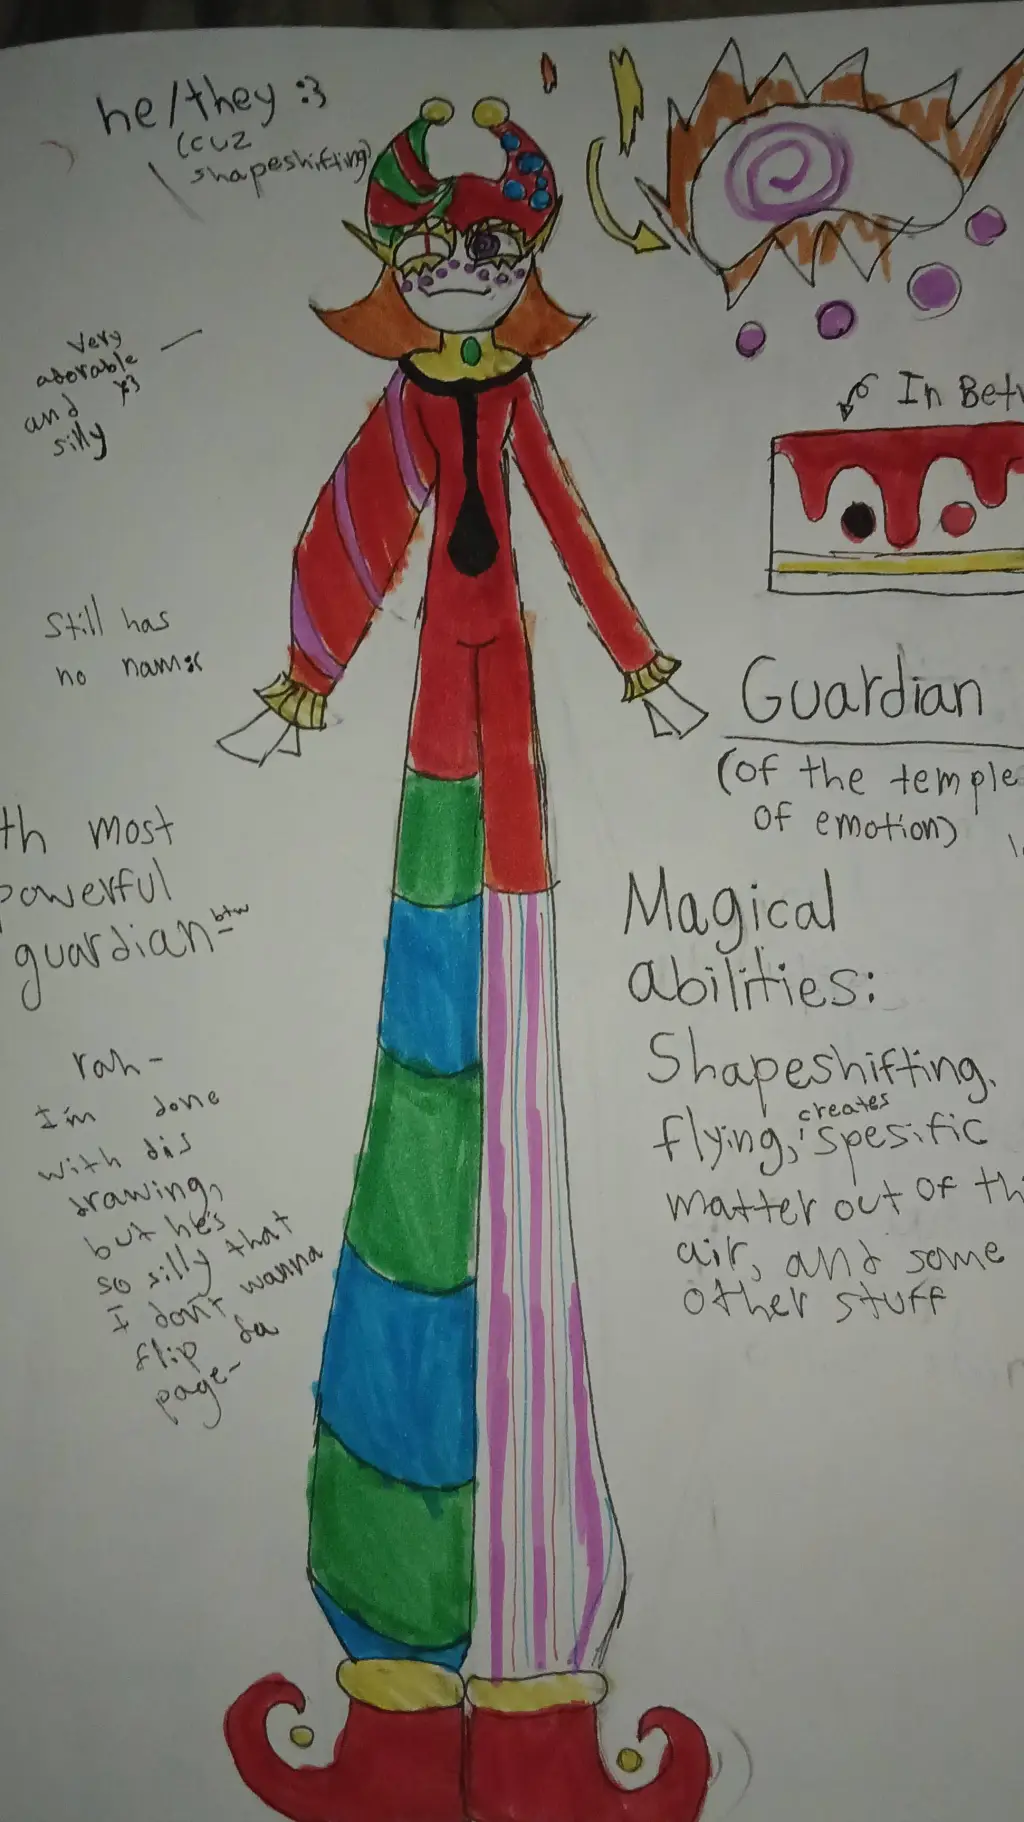 he/they :3
(cuz
shapeshifting)
Very
adorable
and x3
silly
In Betw
Still has
no nam:c
Guardian
(of the temple
of emotion)
th most
powerful
guardian-btw
Magical
abilities:
Shapeshifting,
flying, creates spesific
matter out of thi
air, and some
other stuff
rah-
I'm done
with dis
drawing,
but he's
so silly that
I don't wanna
flip da
page-